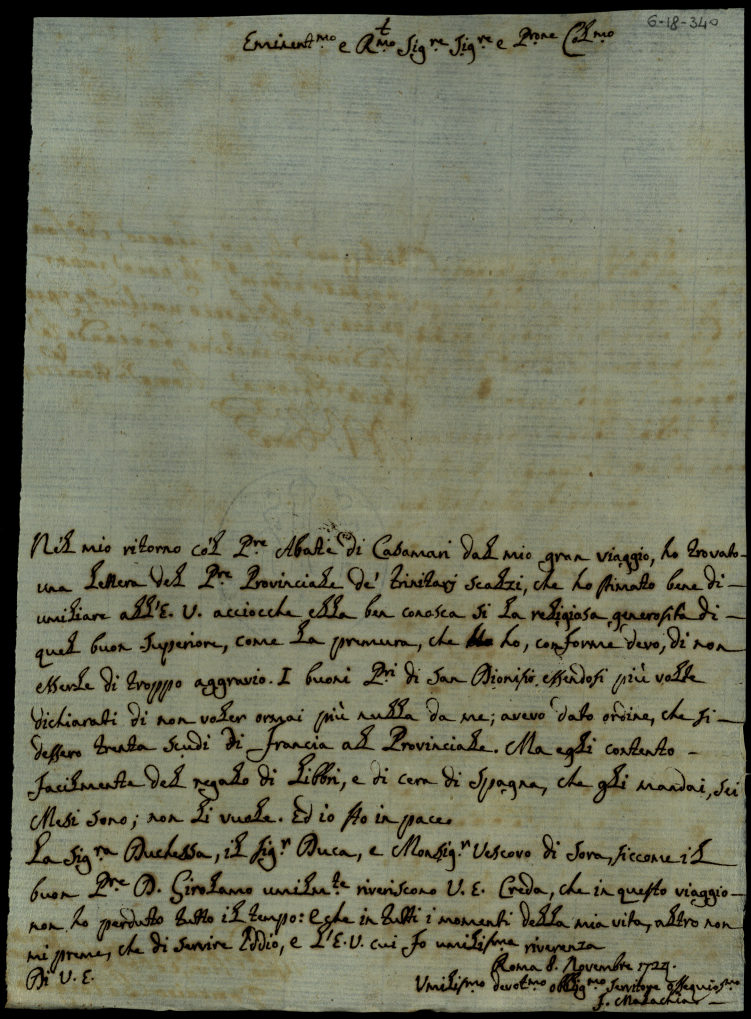 6-18-340
Eminent.mo e R.mo Sig.re Sig.re e P.rone Col.mo
Nel mio ritorno col P.re Abate di Casamari dal mio gran viaggio, ho trovato
una lettera del P.re Provinciale de' trinitarj scalzi, che ho stimato bene di
umiliare all'E. V. acciocche ella ben conosca si la religiosa generosità di
quel buon superiore, come la premura, che ho, conforme devo, di non
esserle di troppo aggravio. I buoni P.ri di San Dionisio essendosi più volte
dichiarati di non voler ormai più nulla da me; avevo dato ordine, che si
dessero trenta scudi di Francia al Provinciale. Ma egli contento
facilmente del regalo di libbri, e di cera di Spagna, che gli mandai, sei
Mesi sono; non li vuole. Ed io sto in pace.
La Sig.ra Duchessa, il Sig.r Duca, e Monsig.r Vescovo di Sora, siccome il
buon P.re D. Girolamo umilm.te riveriscono V. E. Creda, che in questo viaggio
non ho perduto tutto il tempo: e che in tutti i momenti della mia vita, altro non
mi preme, che di servire Iddio, e l'E. V. cui fo umilis.ma riverenza
Roma 8. Novembre 1724.
Di V. E.
Umilis.mo devot.mo obblig.mo servitore ossequios.mo
f. Malachia